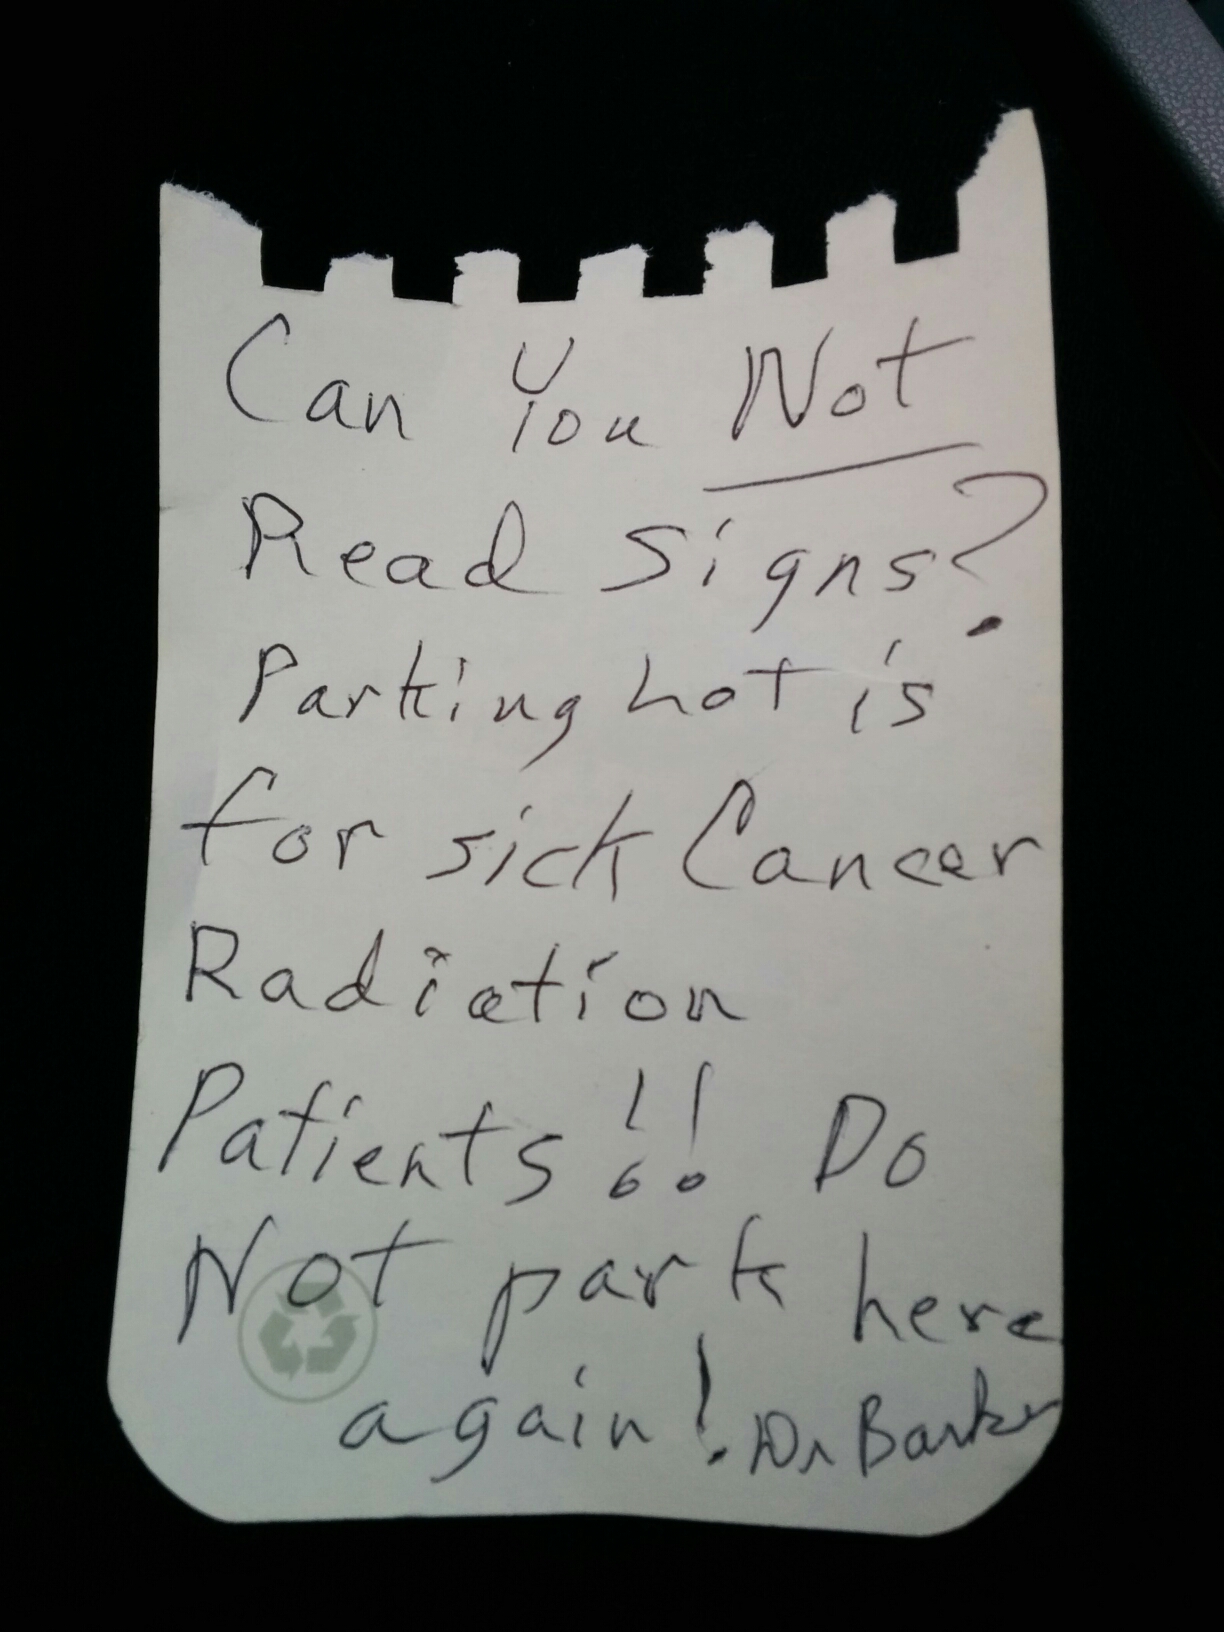 Can You Not
Read Signs?
Parking Lot is
for sick Cancer
Radiation
Patients!! Do
Not park here
again! Dr Barker